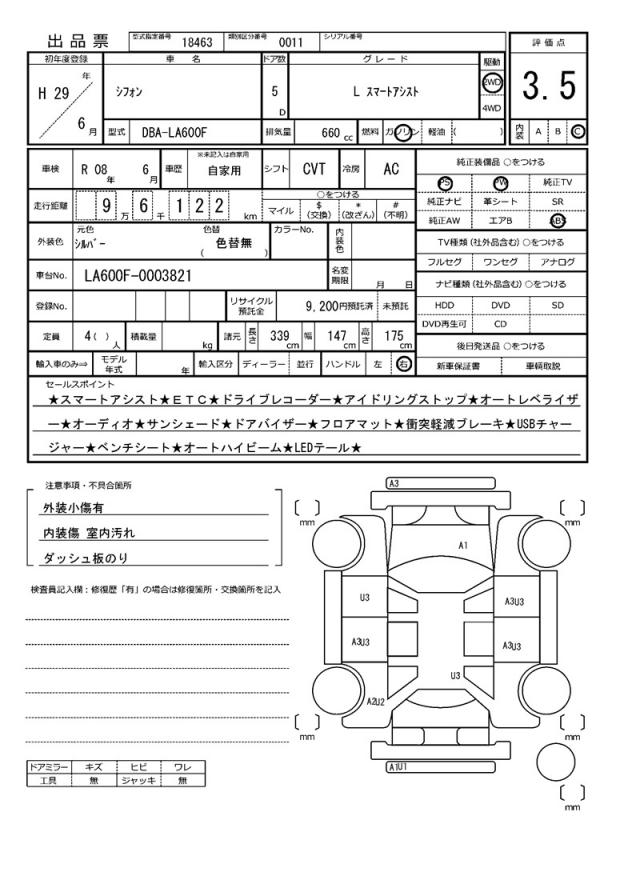 出品票 型式指定番号 18463 類別区分番号 0011 シリアル番号
評価点
3.5
内装 A B C
初年度登録 車名 ドア数 グレード 駆動
H 29 年 6 月 シフォン 5 D L スマートアシスト 2WD 4WD
型式 DBA-LA600F 排気量 660 cc 燃料 ガソリン 軽油 ( )
車検 R 08 年 6 月 車歴 ※未記入は自家用 自家用 シフト CVT 冷房 AC
走行距離 9 万 6 千 1 2 2 km
○をつける
マイル $(交換) *(改ざん) #(不明)
外装色 元色 シルバー 色替 色替無 ( ) カラーNo. 内装色
車台No. LA600F-0003821 名変期限 月 日
登録No. リサイクル預託金 9,200円預託済 未預託
定員 4( )人 積載量 kg 諸元 長さ 339 cm 幅 147 cm 高さ 175 cm
輸入車のみ⇒ モデル年式 年 輸入区分 ディーラー 並行 ハンドル 左 右
純正装備品 ○をつける
PS PW 純正TV
純正ナビ 革シート SR
純正AW エアB ABS
TV種類(社外品含む)○をつける
フルセグ ワンセグ アナログ
ナビ種類(社外品含む)○をつける
HDD DVD SD
DVD再生可 CD
後日発送品 ○をつける
新車保証書 車輌取説
セールスポイント
★スマートアシスト★ETC★ドライブレコーダー★アイドリングストップ★オートレベライザ
ー★オーディオ★サンシェード★ドアバイザー★フロアマット★衝突軽減ブレーキ★USBチャー
ジャー★ベンチシート★オートハイビーム★LEDテール★
注意事項・不具合箇所
外装小傷有
内装傷 室内汚れ
ダッシュ板のり
検査員記入欄:修復歴「有」の場合は修復箇所・交換箇所を記入
ドアミラー キズ ヒビ ワレ
工具 無 ジャッキ 無
A3
[ ] mm [ ] mm
A1
U3 A3U3
A3U3 A3U3
U3
A2U2
[ ] mm [ ] mm
A1U1
[ ] mm